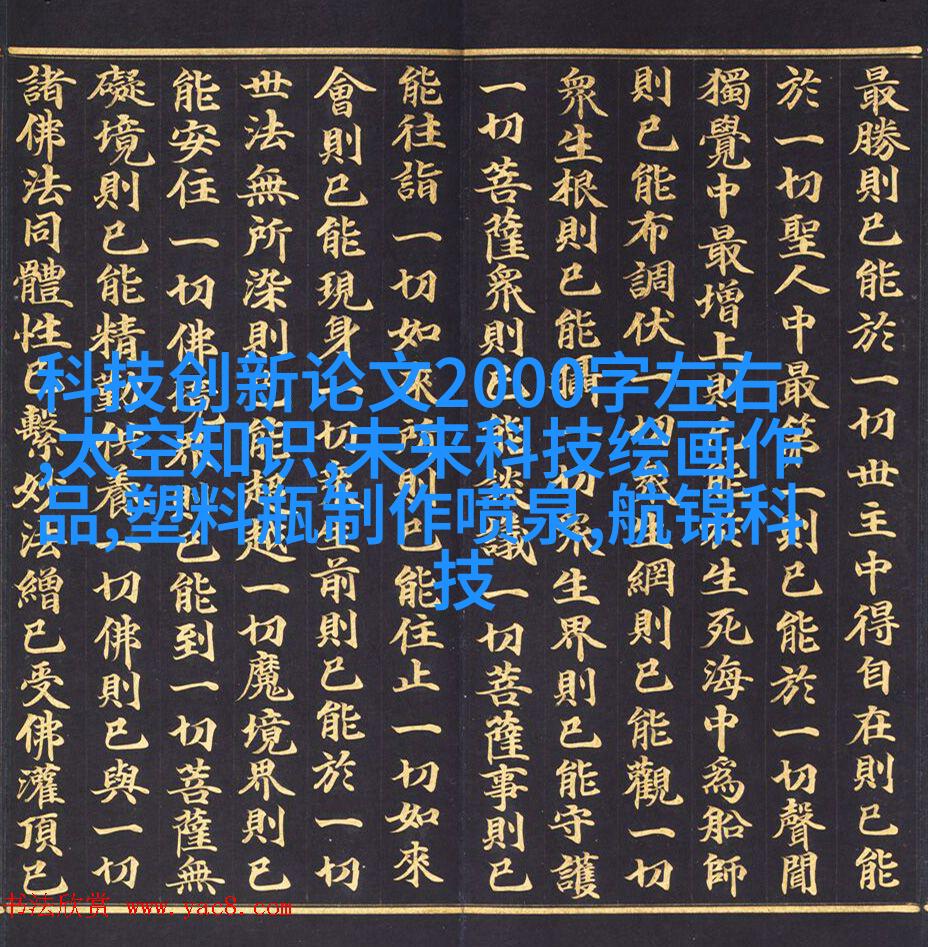 最勝則已能於一切世主中得自在則已能
於一切聖人中最第一則已能於一切聲聞
獨覺中最增上則已能於生死海中爲船師
則已能布調伏一切衆生網則已能觀一切
衆生根則已能攝一切衆生界則已能守護
一切菩薩衆則已能談議一切菩薩事則已
能往詣一切如來所則已能住止一切如來
會則已能現身一切衆生前則已能於一切
世法無所染則已能超越一切魔境界則已
能安住一切佛境界則已能到一切菩薩無
礙境則已能精勤供養一切佛則已與一切
諸佛法同體性已繫妙法繒已受佛灌頂已
科技创新论文2000字左右
,太空知识,未来科技绘画作
品,塑料瓶制作喷泉,航锦科
技
书法欣赏 www.yac8.com